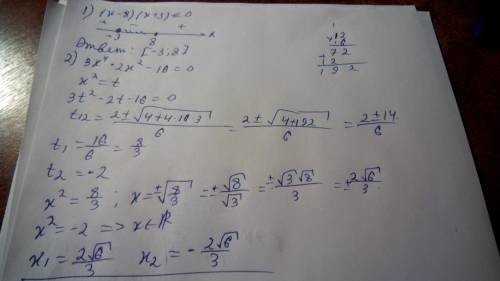 1) (x-8)(x+3)≤0
+ - +
-3 8 x
Ответ: [-3; 8]
2) 3x⁴-2x²-16=0
x²=t
3t²-2t-16=0
t₁₂=2±√4+4·16·3/6=2±√4+192/6=2±14/6
t₁=16/6=8/3
t₂=-2
x²=8/3; x=±√8/3=±√8/√3=±√3√8/3=±2√6/3
x²=-2 => x∈ℝ
x₁=2√6/3 x₂=-2√6/3
1
×12
16
72
+12
192